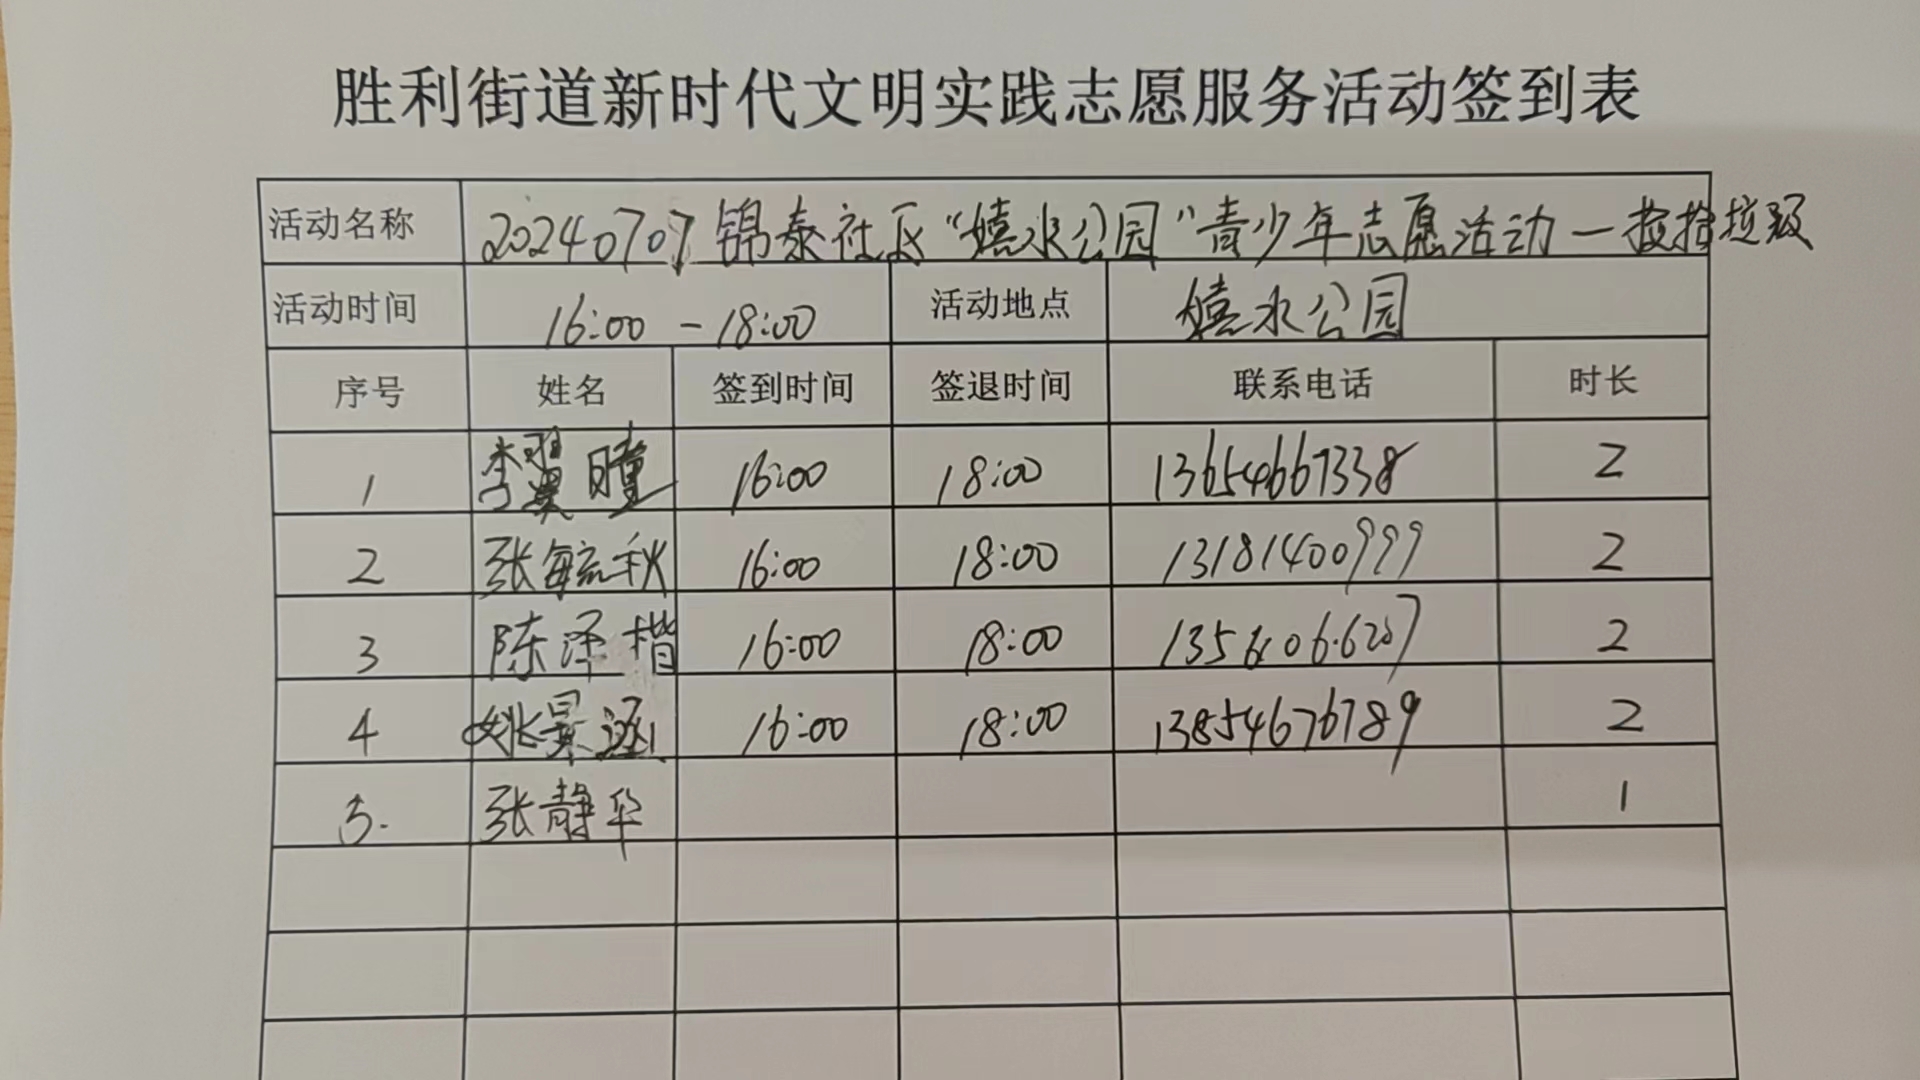 胜利街道新时代文明实践志愿服务活动签到表
活动名称 20240707锦泰社区“嬉水公园”青少年志愿活动一捡拾垃圾
活动时间 16:00-18:00 活动地点 嬉水公园
序号 姓名 签到时间 签退时间 联系电话 时长
1 李翼瞳 16:00 18:00 13654667338 2
2 张毓秋 16:00 18:00 13181400999 2
3 陈泽楷 16:00 18:00 2
4 姚景涵 16:00 18:00 13854676789 2
5. 张静华 1